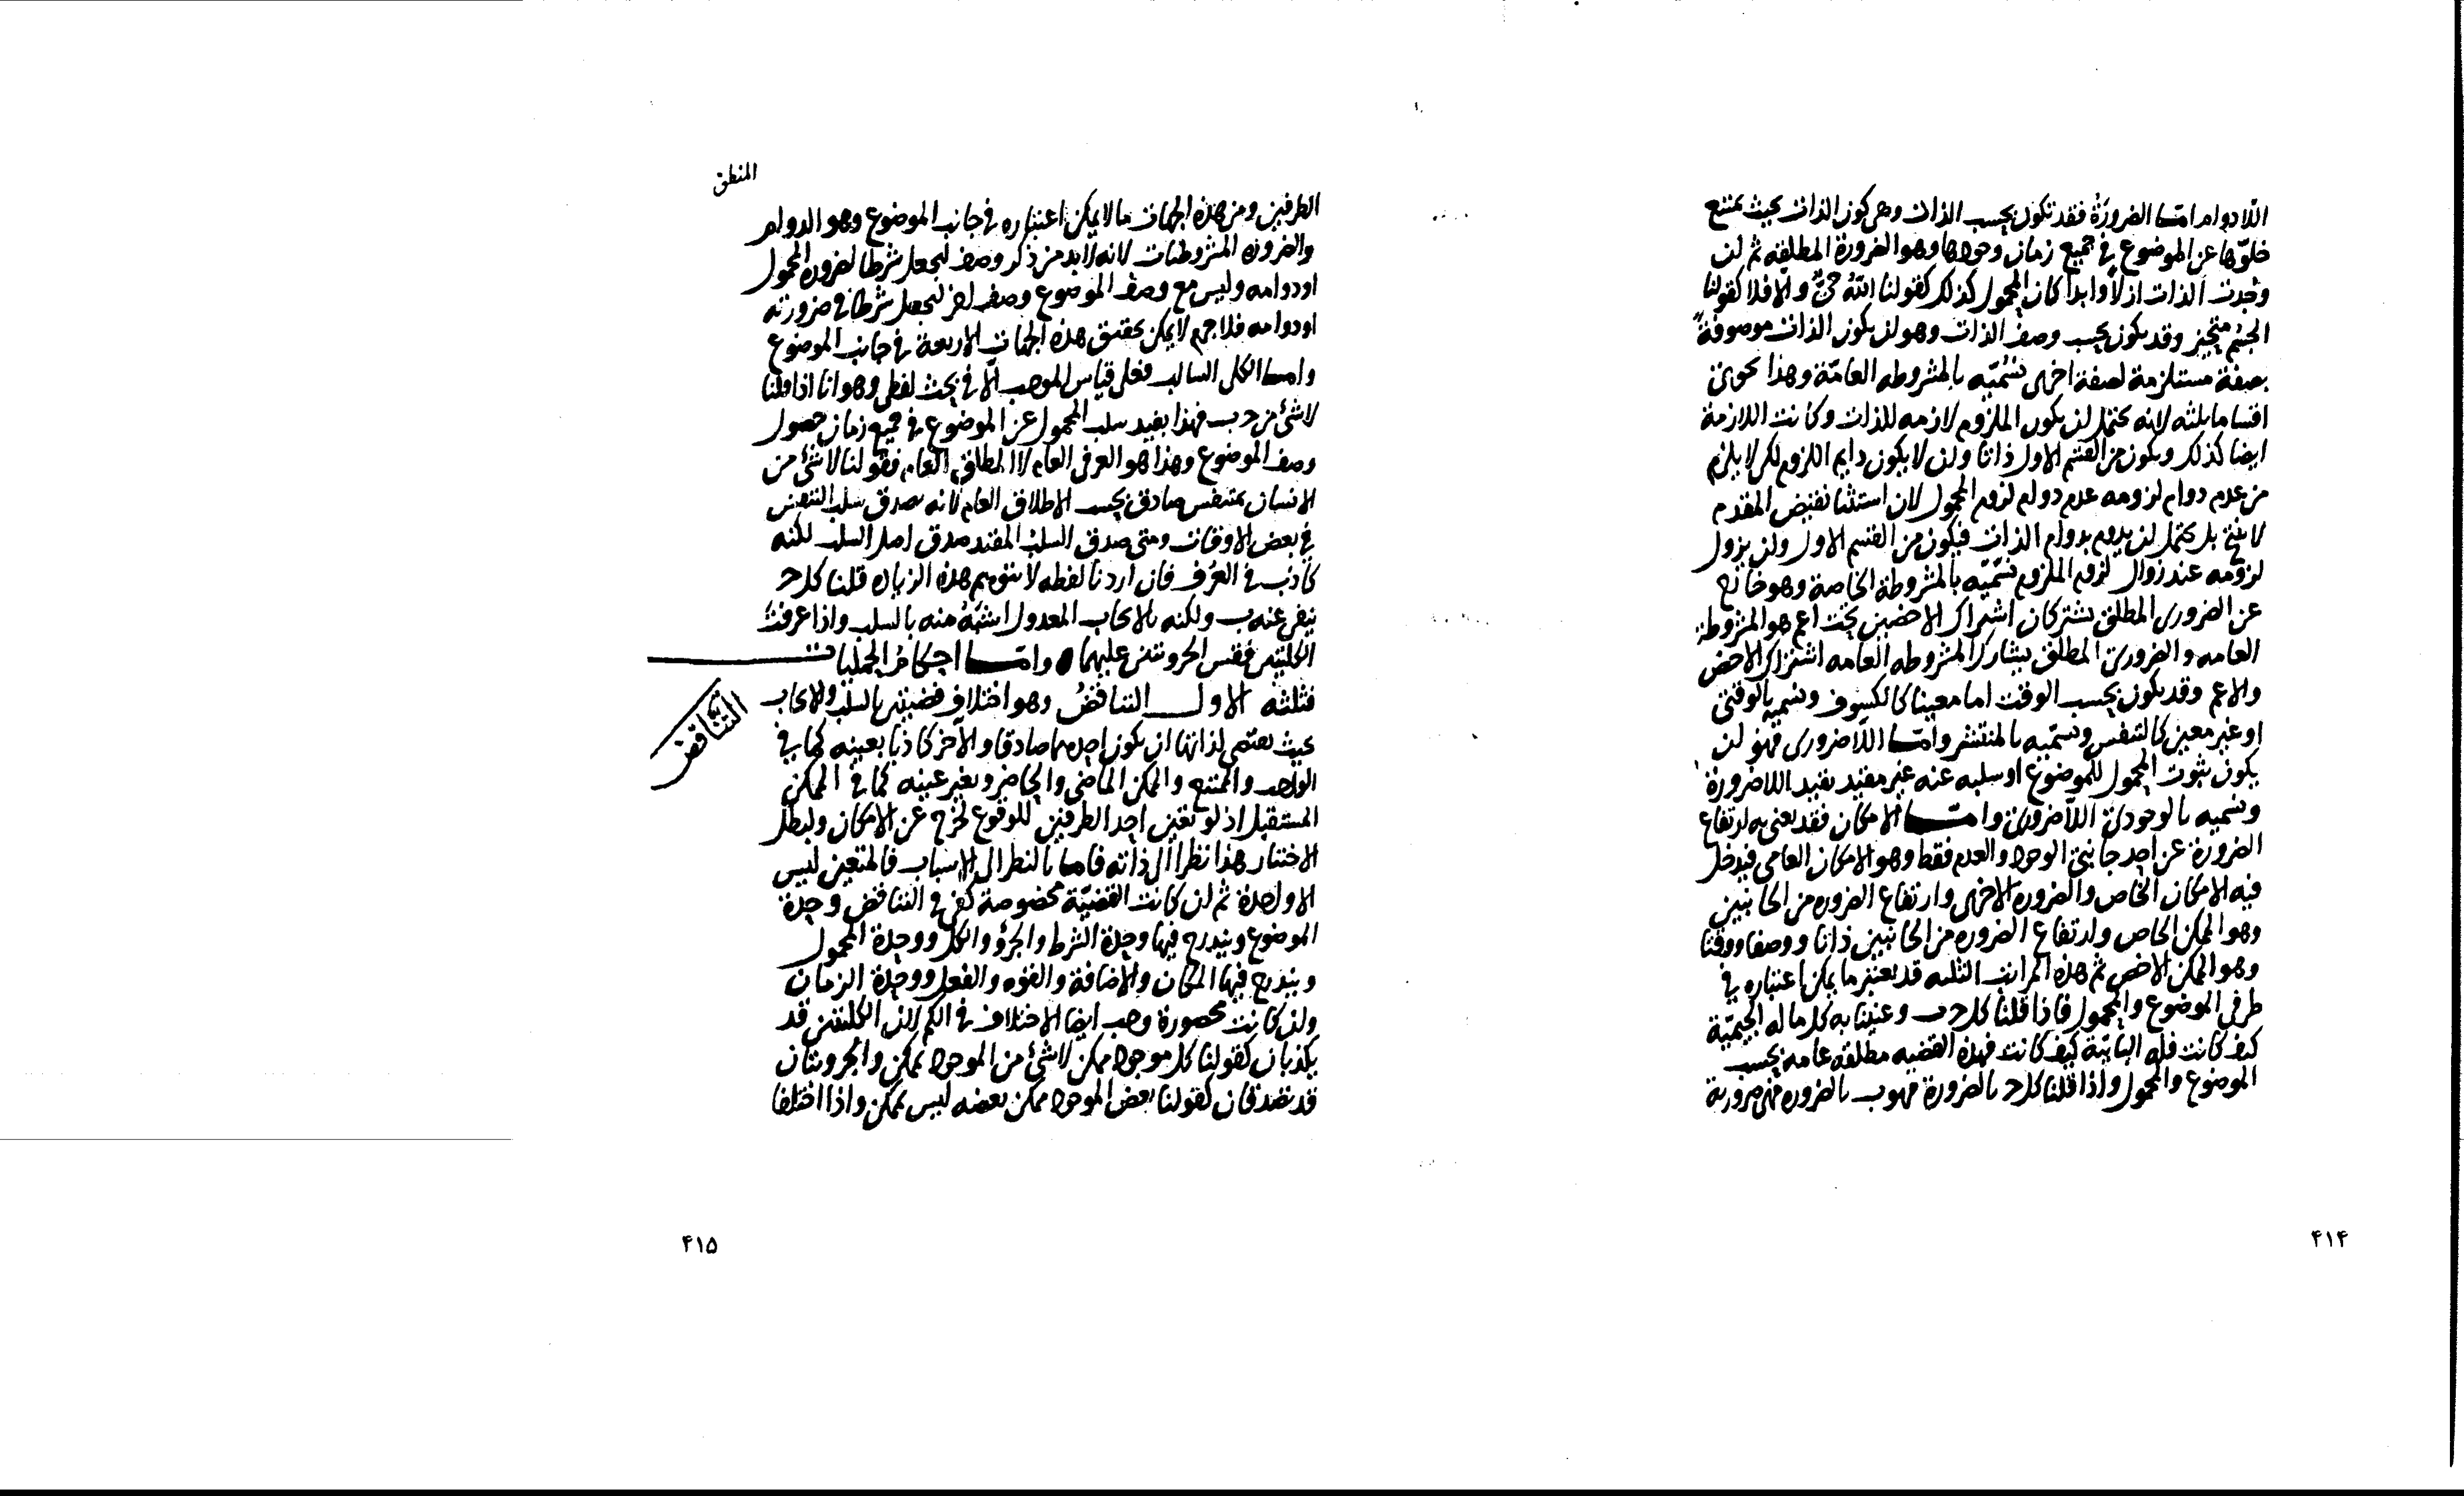 اللادوام امّا الضرورةُ فقد تكون بحسب الذات وهى كون الذات بحيث يمتنع
خلوّها عن الموضوع فى جميع زمان وجودها وهو الضرورة المطلقه ثم ان
وُجدت الذات ازلاً وابداً كان المحمول كذلك كقولنا اللهُ حىٌّ والّا فلا كقولنا
الجسم متحيّز وقد يكون بحسب وصف الذات وهو ان يكون الذات موصوفةً
بصفة مستلزمة لصفة اخرى نسمّيه بالمشروطه العامّة وهذا يحوى
اقساما ثلثه لانه يحتمل ان يكون الملزوم لازمه للذات وكانت اللازمة
ايضا كذلك ويكون من القسم الاول ذاتا وان لا يكون دايم اللزوم لكن لا يلزم
من عدم دوام لزومه عدم دوام لزوم المحمول لان استثنا نقيض المقدم
لا ينتج بل يحتمل ان يدوم بدوام الذات فيكون من القسم الاول وان يزول
لزومه عند زوال لزوم الملزوم نسمّيه بالمشروطة الخاصة وهو خارج
عن الضرورى المطلق يشتركان اشتراك الاخصين تحت اعم هو المشروطة
العامه والضرورى المطلق يشارك المشروطه العامه اشتراك الاخص
والاعم وقد يكون بحسب الوقت اما معينا كالكسوف ونسميه بالوقتى
او غير معين كالتنفس ونسمّيه بالمنتشر وامّا اللّاضرورى فهو ان
يكون ثبوت المحمول للموضوع او سلبه عنه غير مقيد بقيد اللاضرورة
ونسميه بالوجودى اللّاضرورى وامّا الامكان فقد يعنى به ارتفاع
الضرورة عن احد جانبى الوجود والعدم فقط وهو الامكان العامى فيدخل
فيه الامكان الخاص والضروره الاخرى وارتفاع الضروره من الجانبين
وهو الممكن الخاص وارتفاع الضروره من الجانبين ذاتا ووصفا ووقتا
وهو الممكن الاخص ثم هذه المراتب الثلثه قد يعتبر ما يمكن اعتباره فى
طرفى الموضوع والمحمول فاذا قلنا كل ج ب وعنينا به كل ما له الجيميّة
كيف كانت فله البائيّة كيف كانت فهذه القضيه مطلقه عامه بحسب
الموضوع والمحمول واذا قلنا كل ج بالضرورة فهو ب بالضروره فهى ضرورية
٤١٤
المنطق
الطرفين ومن هذه الجهات ما لا يمكن اعتباره فى جانب الموضوع وهو الدوام
والضروره المشروطتان لانه لا بد من ذكر وصف ليجعل شرطا لضروره المحمول
او دوامه وليس مع وصف الموضوع وصف اخر ليجعل شرطا فى ضرورته
او دوامه فلا جرم لا يمكن تحقيق هذه الجهات الاربعة فى جانب الموضوع
وامّا الكلى السالب فعلى قياس الموجب الّا فى بحث لفظى وهو انا اذا قلنا
لا شئ من ج ب فهذا يفيد سلب المحمول عن الموضوع فى جميع زمان حصول
وصف الموضوع وهذا هو العرفى العام لا المطلق العام فقولنا لا شئ من
الانسان بمتنفس صادق بحسب الاطلاق العام لانه يصدق سلب التنفس
فى بعض الاوقات ومتى صدق السلب المقيد صدق اصل السلب لكنه
كاذب فى العرف فان اردنا لفظه لا تتوهم هذه الزياده قلنا كل ج
ينفى عنه ب ولكنه بالايجاب المعدول اشبهُ منه بالسلب واذا عرفت
الكليتين فقس الجزويتين عليهما وامّا احكام الحمليات
فثلثة الاول التناقضُ وهو اختلاف قضيتين بالسلب والايجاب
التناقض
بحيث يقتضى لذاتها ان يكون احدهما صادقا والآخر كاذبا بعينه كما فى
الواجب والممتنع والممكن الماضى والحاضر وبغير عينه كما فى الممكن
المستقبل اذ لو تعين احد الطرفين للوقوع لخرج عن الامكان ولبطل
الاختيار هذا نظرا الى ذاته فاما بالنظر الى الاسباب فالمتعين ليس
الا واحدة ثم ان كانت القضيّة مخصوصة كفى فى التناقض وحدة
الموضوع ويندرج فيها وحدة الشرط والجزؤ والكل ووحدة المحمول
ويندرج فيها المكان والاضافة والقوه والفعل ووحدة الزمان
وان كانت محصورة وجب ايضا الاختلاف فى الكم لان الكليتين قد
يكذبان كقولنا كل موجود ممكن لا شئ من الموجود بممكن والجزويتان
قد تصدقان كقولنا بعض الموجود ممكن بعضه ليس بممكن واذا اختلفا
٤١٥